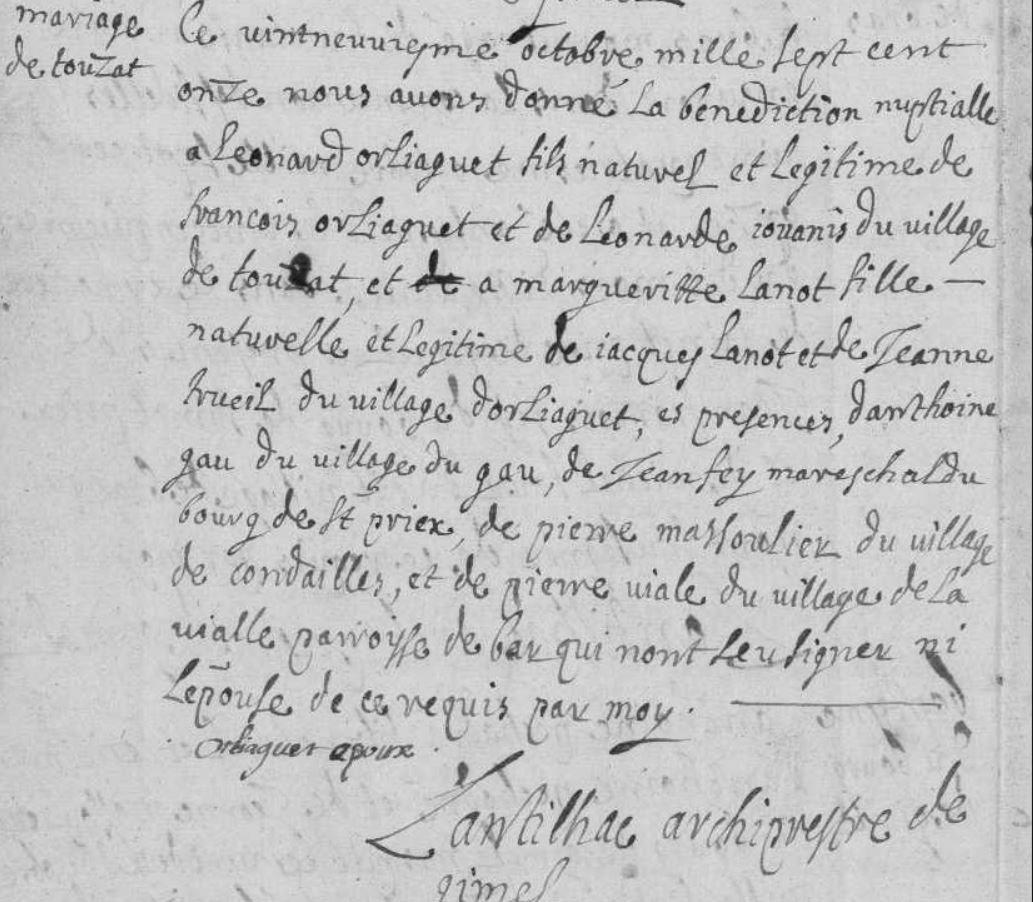 mariage
de touzat
Ce vintneuviesme octobre mille sept cent
onze nous avons donné la benediction nuptialle
a Leonard orliaguet fils naturel et legitime de
francois orliaguet et de Leonarde iouanis du village
de touzat, et de a margueritte Lanot fille
naturelle et legitime de iacques Lanot et de Jeanne
trueil du village dorliaguet, es presences, danthoine
gau du village du gau, de Jean fey mareschal du
bourg de st priex, de pierre massoulier du village
de condailles, et de pierre viale du village de la
vialle parroisse de bar qui nont sceu signer ni
Lepouse de ce requis par moy.
orliaguet epoux
Lantilhac archiprestre de
gimel